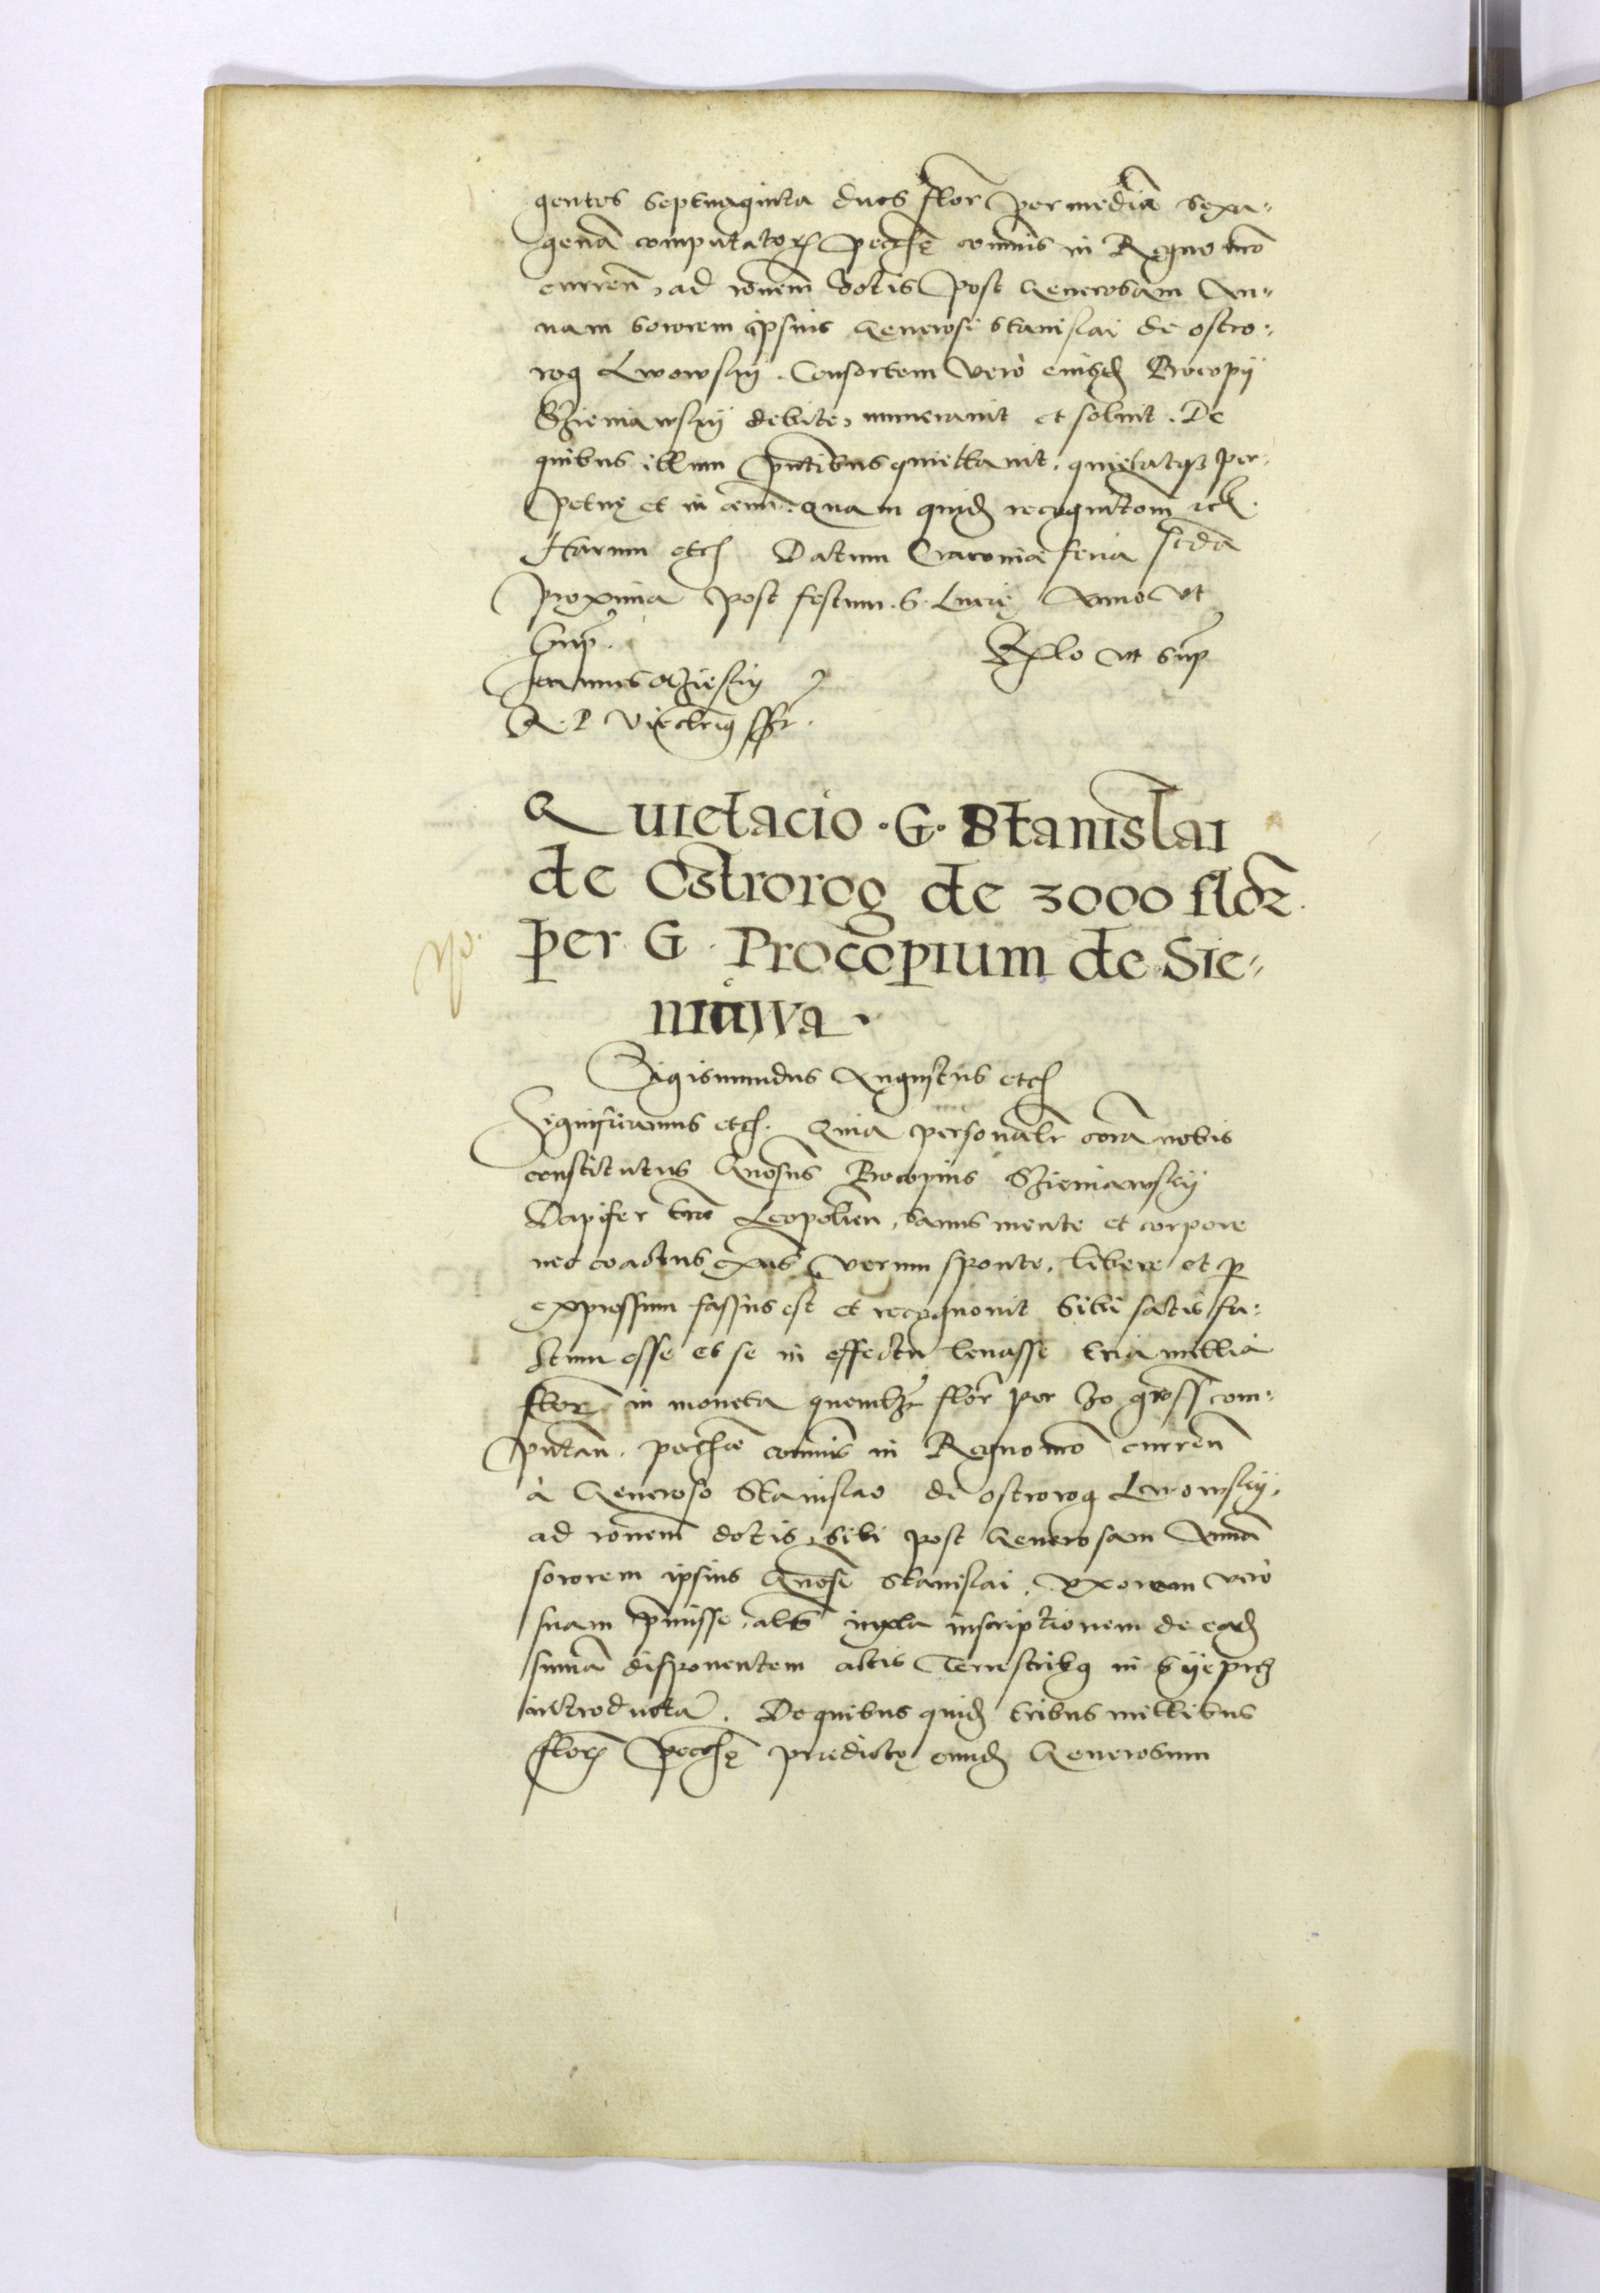 gentos septuaginta duos flor per mediã sexa-
genã computator pecũe com̃uis in Regno nr̃o
curren̄, ad ronem dotis post Generosam An-
nam sororem ipsius Generosi Stanislai de ostro-
rog Lwowsky. Consortem verò eiusd Procopÿ
Szieniawsky debite, numeravit et solvit. De
quibus illum pn̄tibus quiettavit, quietatqz per-
petuę et in aevũ. Quam quid recognitom etc.
Harum etc Datum Cracoviae feria scdã
proxima post festum .S. Lucię Anno vt
Sup. Rlo vt sup
Joannes
R. P. Vicecancrius ssr.
Quietacio .G. Stanislai
de Ostrorog de 3000 flor.
per G. Procopium de Sie-
niawa.
Sigismundus Augustus etc
Significamus etc. Quia personalr corã nobis
constitutus Gnosus Procopius Szieniawsky
Dapifer trae Leopolien, sanus mente et corpore
nec coactus verum sponte, libere et p
expressum fassus est et recognovit sibi satis fa-
ctum esse et se in effectu levasse tria millia
flor in moneta quemlz flor per 30 gross com-
putan. pecũiae com̃uis in Regno nr̃o curren̄
à Generoso Stanislao de ostrorog Lwowsky,
ad ronem dotis, sibi post Generosam Annã
sororem ipsius Gnosi Stanislai, vxorem verò
suam pmisse, als iuxta inscriptionem de ead
sum̃ã disponentem actis Terrestribq in
introductã. De quibus quid tribus millibus
flor pecũę praedictę eund Generosum